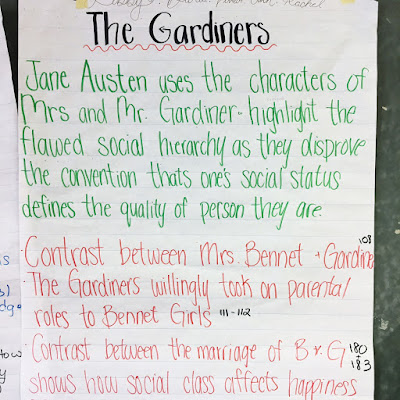 Rachel
The Gardiners
Jane Austen uses the characters of
Mrs and Mr. Gardiner - highlight the
flawed social hierarchy as they disprove
the convention thats one's social status
defines the quality of person they are.
108
· Contrast between Mrs. Bennet + Gardiner
· The Gardiners willingly took on parental
roles to Bennet Girls 111-112
· Contrast between the marriage of B & G 180
183
shows how social class affects happiness